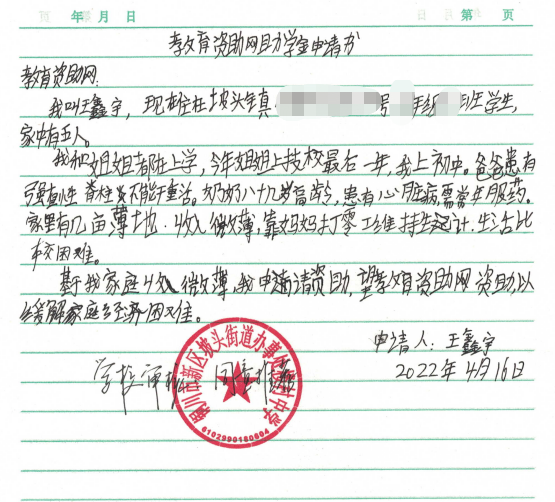 年 月 日 第 页
教育资助网助学金申请书
教育资助网:
我叫王鑫宇, 现住在坡头镇 号 年级 班学生,
家中有五人。
我和姐姐都在上学, 今年姐姐上技校最后一年, 我上初中。爸爸患有
强直性脊柱炎不能干重活。奶奶八十几岁高龄, 患有心脏病需常年服药。
家里有几亩薄地. 收入微薄, 靠妈妈打零工维持生计. 生活比
较困难。
基于我家庭收入微薄, 我申请资助, 望教育资助网资助, 以
缓解家庭经济困难。
申请人: 王鑫宇
2022年4月16日
学校审核 同意推荐
新区坡头街道办事处 中学
6102990180804